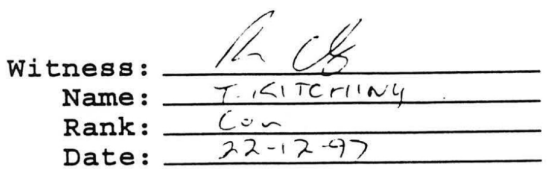 Witness:
Name: T. KITCHING
Rank: Con
Date: 22-12-97